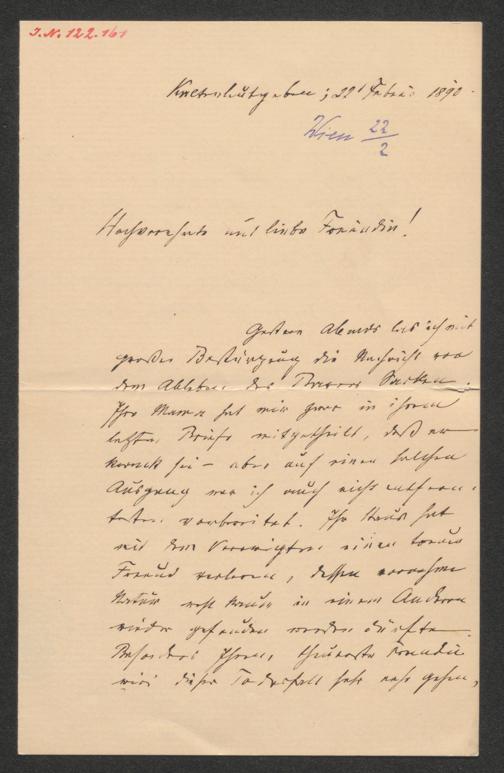 J.N. 122.161
Kaltenleutgeben; 22t Februar 1890.
Wien 22/2
Hochverehrte und liebe Freundin!
Gestern Abends las ich mit
großer Bestürzung die Nachricht von
dem Ableben des Barons Sacken.
Ihre Mama hat mir zwar in ihrem
letzten Briefe mitgetheilt, daß er
krank sei – aber auf einen solchen
Ausgang war ich auch nicht entfern-
testens vorbereitet. Ihr Haus hat
mit dem Verewigten einen treuen
Freund verloren, dessen vornehme
Natur wohl kaum in einem Anderen
wieder gefunden werden dürfte.
Besonders Ihnen, theuerste Freundin
wird dieser Todesfall sehr nahe gehen,